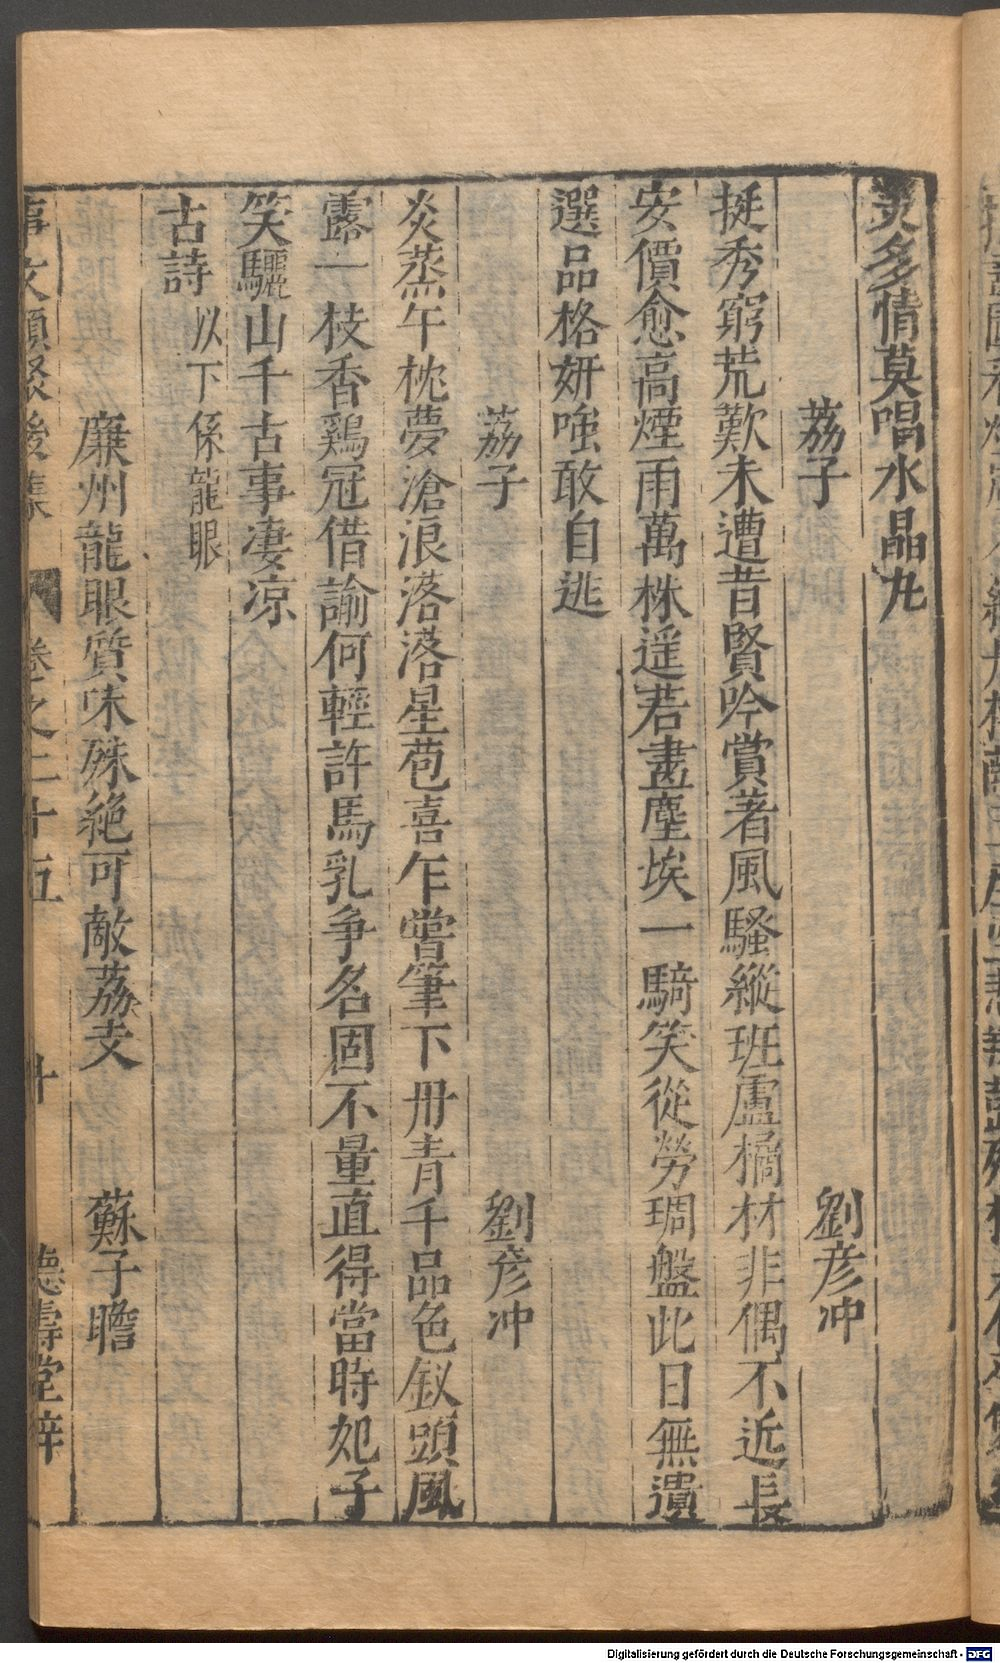 炎多情莫唱水晶丸
荔子 劉彥冲
挺秀窮荒歎未遭昔賢吟賞著風騷縱班盧橘材非偶不近長
安價愈高煙雨萬株遥若畫塵埃一騎笑從勞琱盤此日無遺
選品格妍嗤敢自逃
荔子 劉彥冲
炎蒸午枕夢滄浪落落星苞喜乍嘗筆下丹青千品色釵頭風
露一枝香鷄冠借諭何輕許馬乳争名固不量直得當時妃子
笑驪山千古事凄凉
古詩 以下係龍眼
廉州龍眼質味殊絶可敵荔支 蘇子瞻
事文類聚後集 卷之二十五 十 德壽堂梓
Digitalisierung gefördert durch die Deutsche Forschungsgemeinschaft - DFG